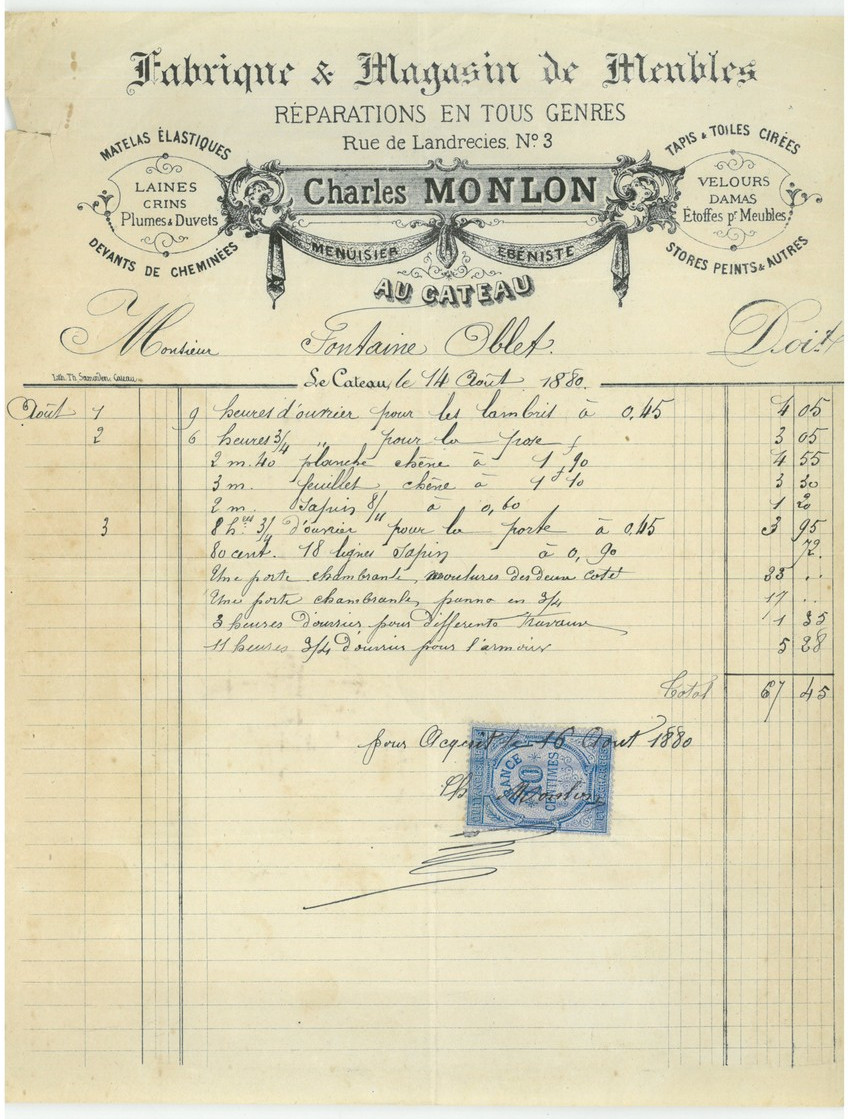 Fabrique & Magasin de Meubles
RÉPARATIONS EN TOUS GENRES
Rue de Landrecies, Nº 3
MATELAS ÉLASTIQUES
LAINES
CRINS
Plumes & Duvets
DEVANTS DE CHEMINÉES
Charles MONLON
MENUISIER ÉBÉNISTE
AU CATEAU
TAPIS & TOILES CIRÉES
VELOURS
DAMAS
Étoffes pr Meubles
STORES PEINTS & AUTRES
Monsieur Fontaine Oblet. Doit
Lith. Th. Samaden Cateau
Le Cateau, le 14 Août 1880.
Août 1 9 heures d'ouvrier pour les lambris à 0,45 4 05
2 6 heures 3/4 " pour la pose 3 05
2 m. 40 planche chêne à 1 f 90 4 55
3 m. feuillet chêne à 1 f 10 3 30
2 m. Sapin 8/" à 0,60 1 20
3 8 h. 3/4 d'ouvrier pour la porte à 0,45 3 95
80 cent. 18 lignes Sapin à 0,90 72.
Une porte chambranle, moulures des deux coté 23 ..
Une porte chambranle, panno en 3/4 17 ..
3 heures d'ouvrier pour differents travaux 1 35
11 heures 3/4 d'ouvrier pour l'armoire 5 28
Total 67 45
pour Acquit le 16 Aout 1880
Ch Monlon
FRANCE
10
CENTIMES